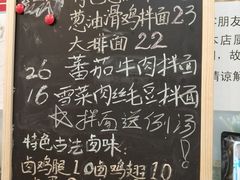 葱油滑鸡拌面23
大排面22
26 蕃茄牛肉拌面
16 雪菜肉丝毛豆拌面
拌面送例汤!
特色古法卤味:
卤鸡腿10卤鸡翅10
本朋友
本店
故
请谅解